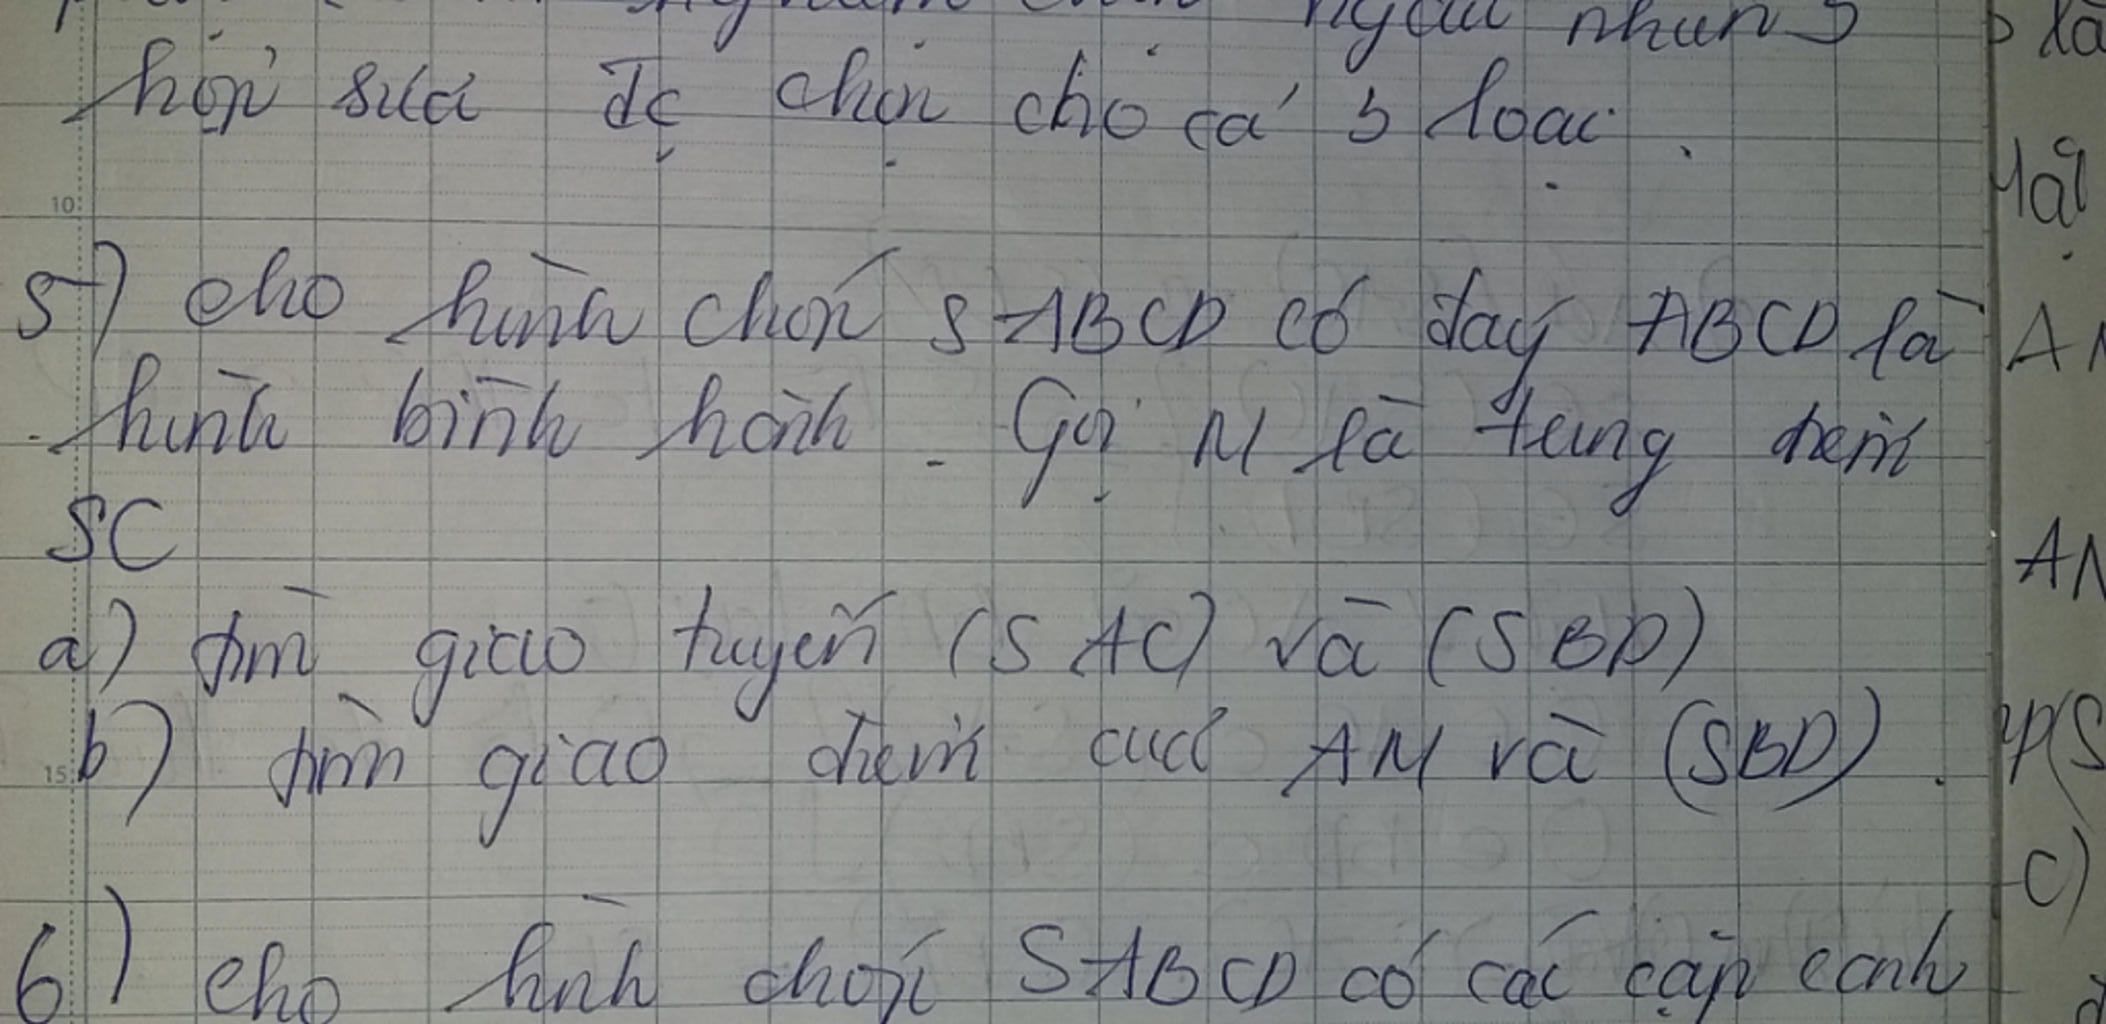 ngẫu nhiên 3
hộp sữa để chọn cho cả 3 loại.
10
5) cho hình chóp SABCD có đáy ABCD là
hình bình hành. Gọi M là trung điểm
SC
a) tìm giao tuyến (SAC) và (SBD)
b) tìm giao điểm của AM và (SBD).
15
6) cho hình chóp SABCD có các cặp cạnh
AN
c)